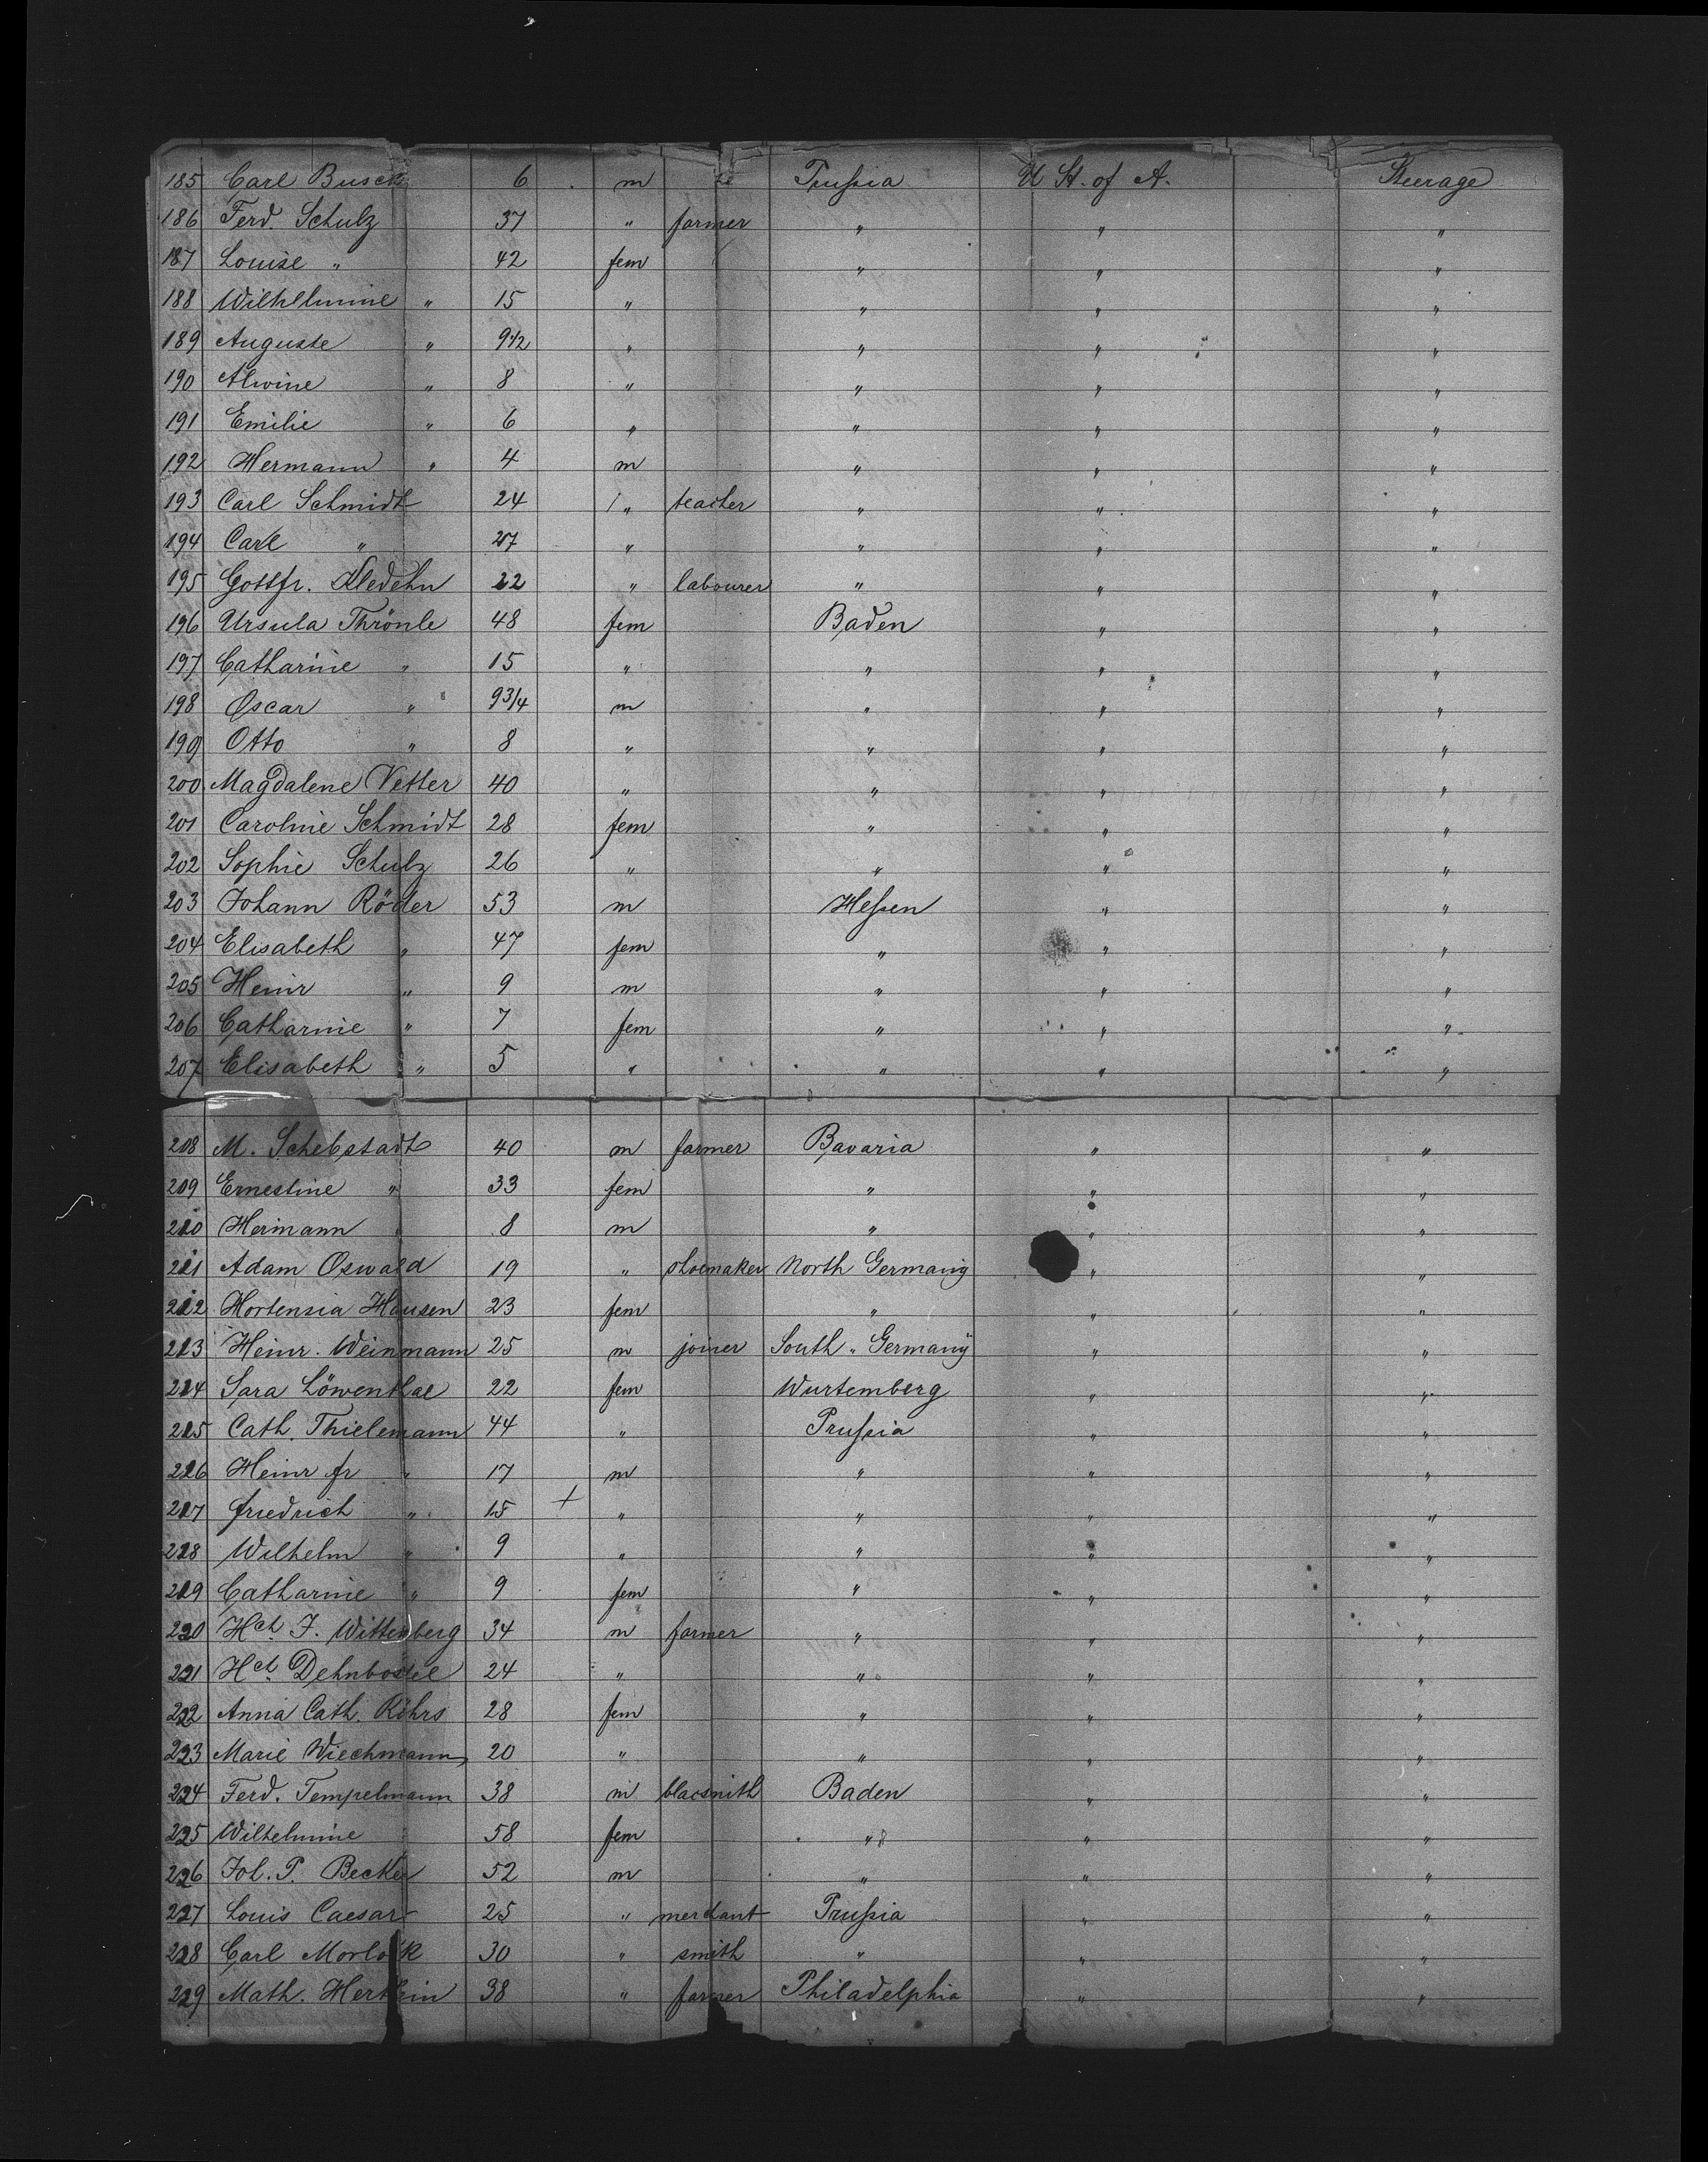 185 Carl Busck 6 m Prussia U St. of A. Steerage
186 Ferd. Schulz 37 " farmer " " "
187 Louise " 42 fem " " "
188 Wilhelmine " 15 " " " "
189 Auguste " 9 1/2 " " " "
190 Alwine " 8 " " " "
191 Emilie " 6 " " " "
192 Hermann " 4 m " " "
193 Carl Schmidt 24 " teacher " " "
194 Carl " 27 " " " "
195 Gottfr. Kledehn 22 " labourer " " "
196 Ursula Thrönle 48 fem Baden " "
197 Catharine " 15 " " " "
198 Oscar " 9 3/4 m " " "
199 Otto " 8 " " " "
200 Magdalene Vetter 40 " " " "
201 Caroline Schmidt 28 fem " " "
202 Sophie Schulz 26 " " " "
203 Johann Röder 53 m Hessen " "
204 Elisabeth " 47 fem " " "
205 Heinr " 9 m " " "
206 Catharine " 7 fem " " "
207 Elisabeth " 5 " " " "
208 M. Schebstadt 40 m farmer Bavaria " "
209 Ernestine " 33 fem " " "
210 Hermann " 8 m " " "
211 Adam Oswald 19 " shoemaker North Germany " "
212 Hortensia Hausen 23 fem " " "
213 Heinr. Weinmann 25 m joiner South " Germany " "
214 Sara Löwenthal 22 fem Wurtemberg " "
215 Cath. Thielemann 44 " Prussia " "
216 Heinr fr " 17 m " " "
217 friedrich " 15 + " " " "
218 Wilhelm " 9 " " " "
219 Catharine " 9 fem " " "
220 Hch J. Wittenberg 34 m farmer " " "
221 Hch Dehnbostel 24 " " " "
222 Anna Cath. Röhrs 28 fem " " "
223 Marie Wiechmann 20 " " " "
224 Ferd. Tempelmann 38 m blacsmith Baden " "
225 Wilhelmine " 58 fem " " "
226 Joh. P. Becker 52 m " " "
227 Louis Caesar 25 " merchant Prussia " "
228 Carl Morlock 30 " smith " " "
229 Math. Herthein 38 " farmer Philadelphia " "